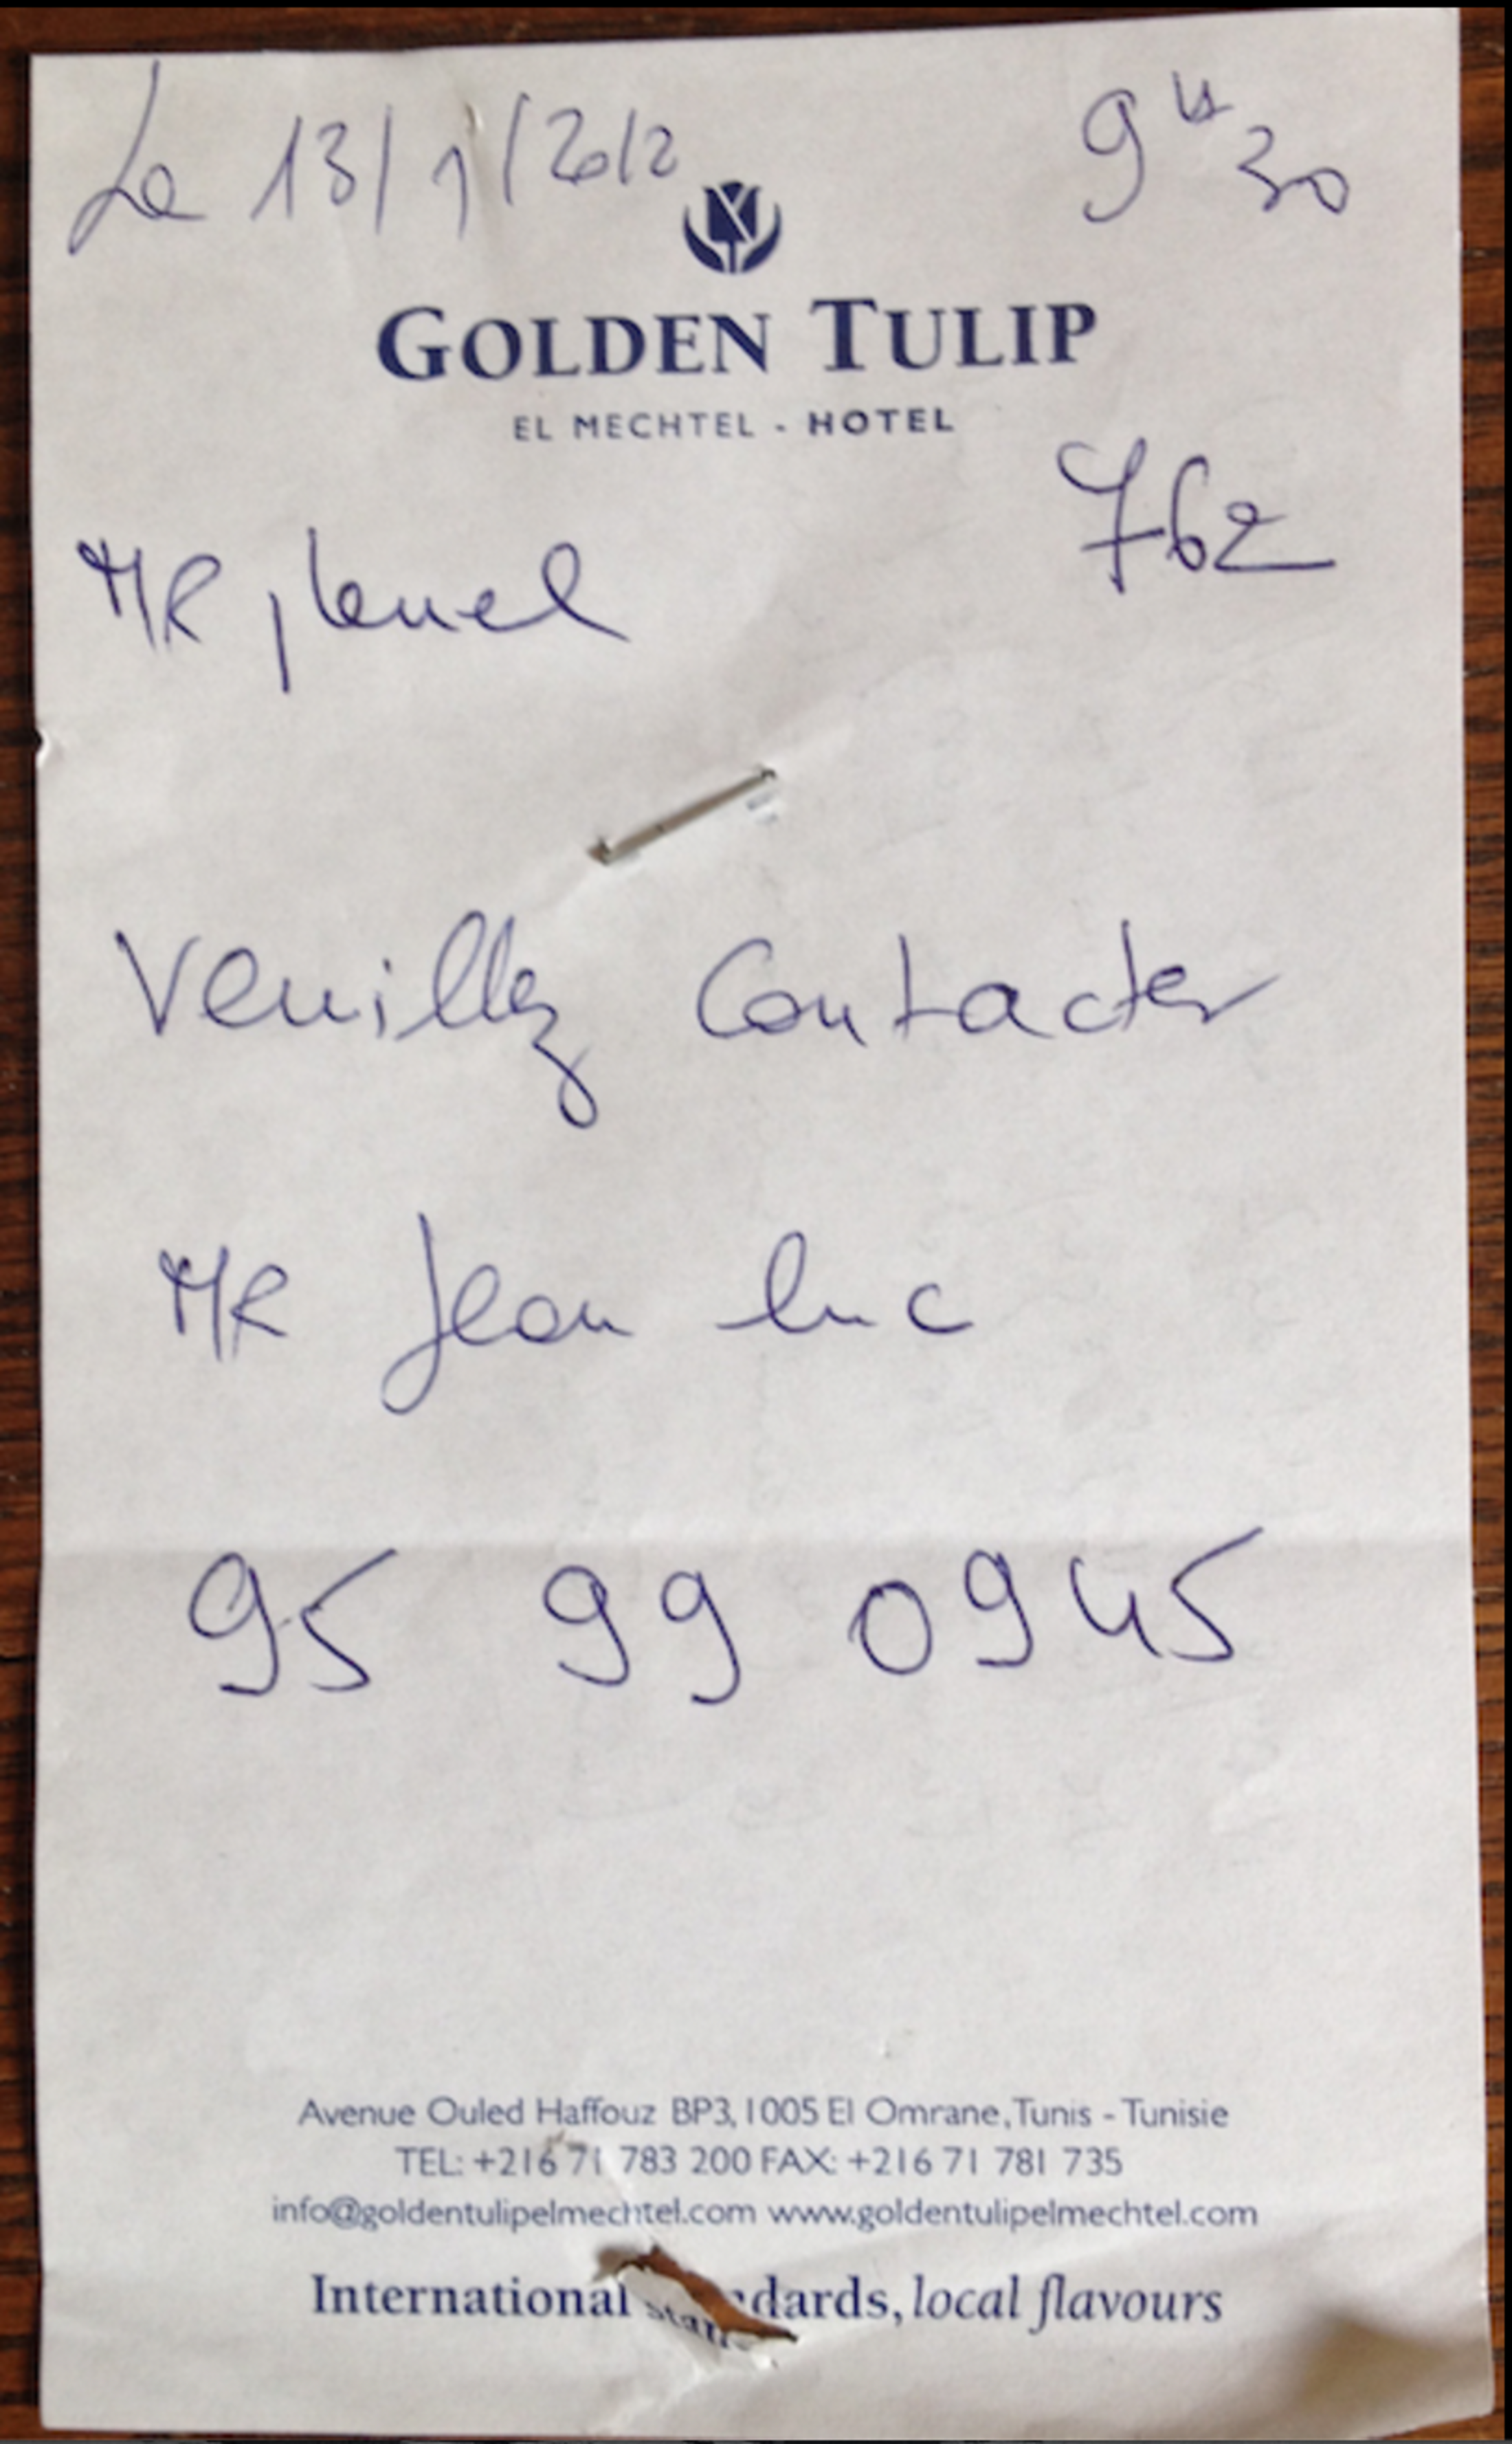 Le 13/1/2012 9H30
GOLDEN TULIP
EL MECHTEL - HOTEL
762
MR
Veuillez Contacter
MR Jean luc
95 99 0945
Avenue Ouled Haffouz BP3, 1005 El Omrane, Tunis - Tunisie
TEL: +216 71 783 200 FAX: +216 71 781 735
info@goldentulipelmechtel.com www.goldentulipelmechtel.com
International standards, local flavours